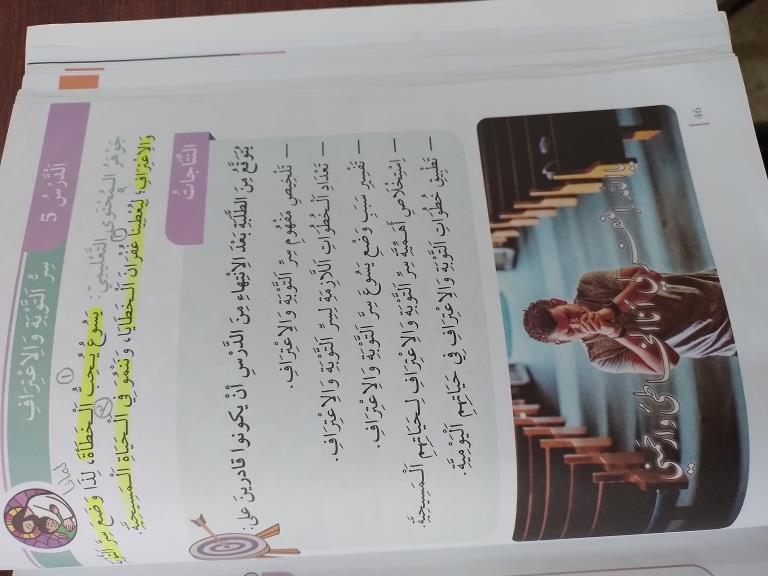 الدَّرْسُ 5
سِرُّ التَّوْبَةِ وَالِاعْتِرَافِ
لماذا
جَوْهَرُ الْمُحْتَوَى التَّعْلِيمِيّ: يَسُوعُ يُحِبُّ الْخُطَأَةَ، لِذَا وَضَعَ سِرَّ التَّوْبَةِ
وَالِاعْتِرَافِ، لِيُعْطِينَا غُفْرَانَ الْخَطَايَا، وَنَنْمُوَ فِي الْحَيَاةِ الْمَسِيحِيَّةِ.
النَّتَاجَاتُ
يُتَوَقَّعُ مِنَ الطَّلَبَةِ بَعْدَ الِانْتِهَاءِ مِنَ الدَّرْسِ أَنْ يَكُونُوا قَادِرِينَ عَلَى:
– تَلْخِيصِ مَفْهُومِ سِرِّ التَّوْبَةِ وَالِاعْتِرَافِ.
– تَعْدَادِ الْخُطُوَاتِ اللَّازِمَةِ لِسِرِّ التَّوْبَةِ وَالِاعْتِرَافِ.
– تَفْسِيرِ سَبَبِ وَضْعِ يَسُوعَ سِرَّ التَّوْبَةِ وَالِاعْتِرَافِ.
– اسْتِخْلَاصِ أَهَمِّيَّةِ سِرِّ التَّوْبَةِ وَالِاعْتِرَافِ لِحَيَاتِهِمِ الْمَسِيحِيَّةِ.
– تَطْبِيقِ خُطُوَاتِ التَّوْبَةِ وَالِاعْتِرَافِ فِي حَيَاتِهِمِ الْيَوْمِيَّةِ.
يا الله اغفر لي أنا الخاطئ وارحمني
46